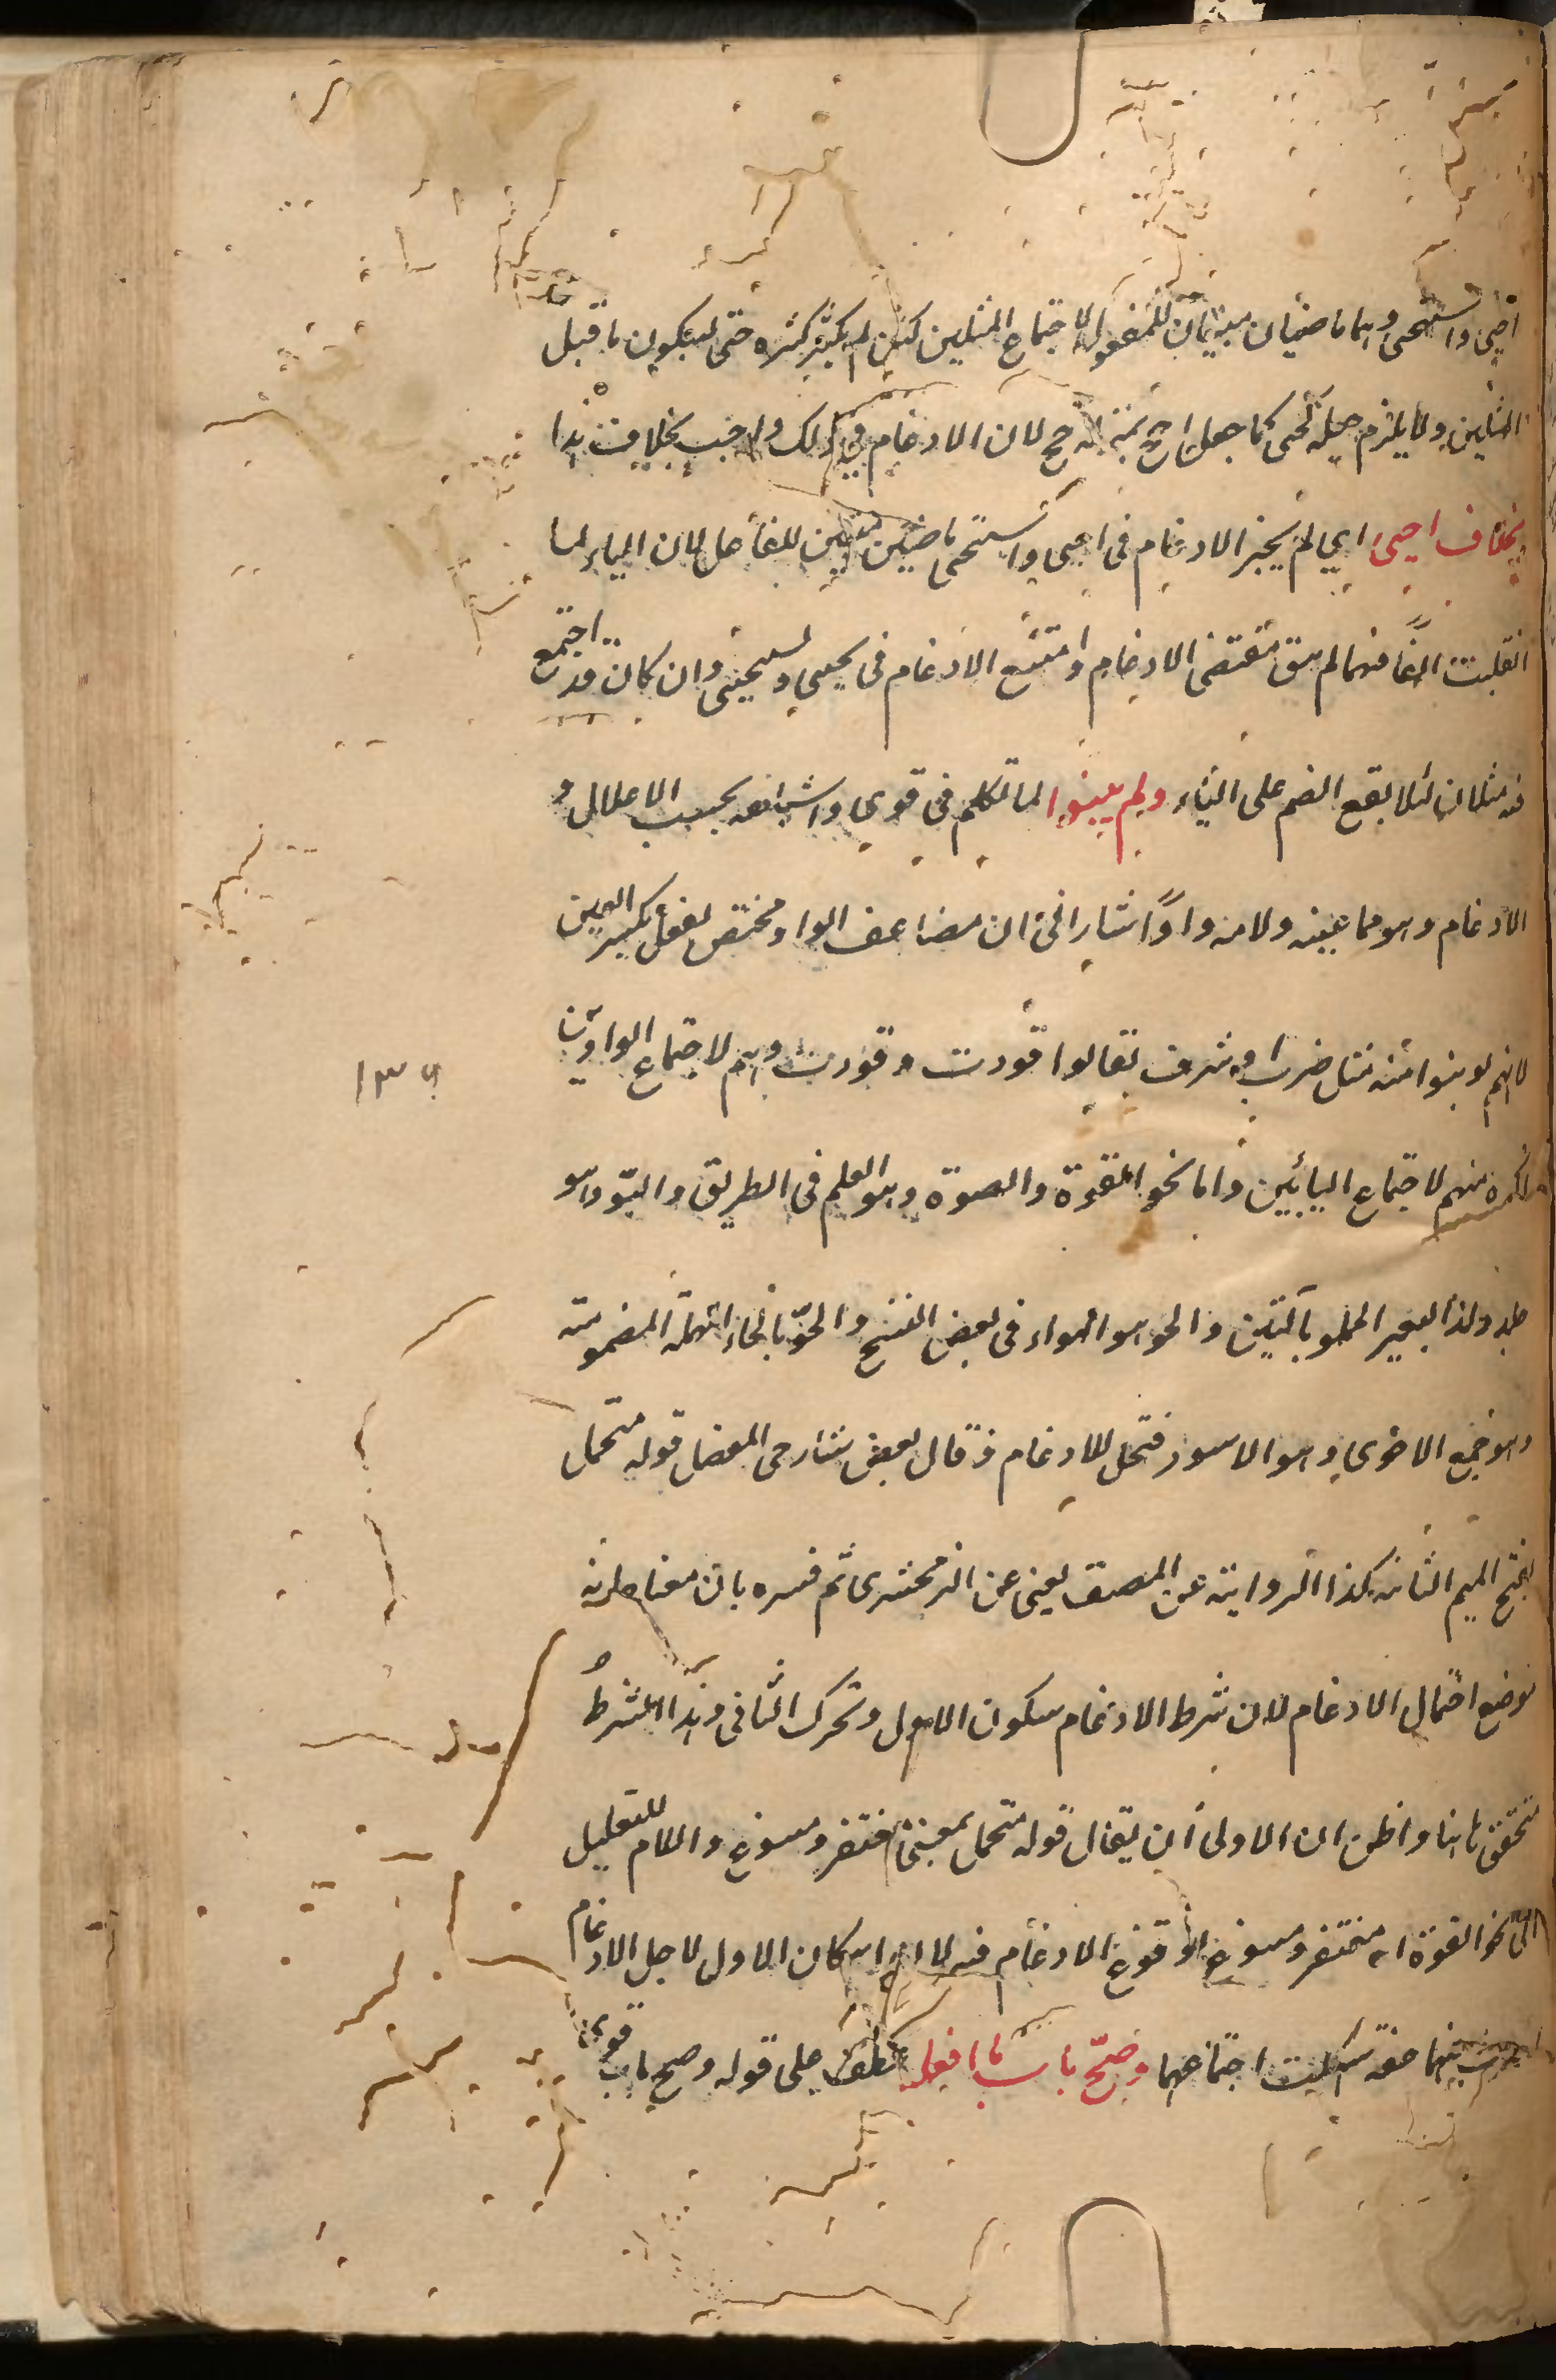 احيى واستحيى وهما ماضيان مبنيان للمفعول لاجتماع المثلين لكن لم يكثر كثرة حتى ليكون ما قبل
المثلين ولا يلزم جعله كحى كما جعل احج بمنزلة حج لان الادغام فى ذلك واجب بخلاف هذا
بخلاف احيى اي لم يجز الادغام فى احيى واستحيى ماضيين مبنيين للفاعل لان الياء لما
انقلبت الفا فيهما لم يبق مقتضى الادغام وامتنع الادغام فى يحيى ويستحيى وان كان قد اجتمع
فيه مثلان لئلا يقع الضم على الياء ولم يبينوا لما تكلم فى قوى واشباهه بحسب الاعلال و
الادغام وهو مما عينه ولامه واوا اشار الى ان مضاعف الواو مختص بفعل بكسر العين
لانهم لو بنوا منه مثل ضرب او شرف لقالوا قووت وقووت وهم لاجتماع الواوين
اكره منهم لاجتماع اليائين واما نحو القوة والصوة وهو العلم فى الطريق والبو وهو
جلد ولد البعير المملو بالتبن والجو هو الهواء فى بعض النسخ والحو بالحاء المهملة المضمومة
وهو جمع الاحوى وهو الاسود فتحمل للادغام وقال بعض شارحى المفصل قوله متحمل
بفتح الميم الثانية كذا الرواية عن المصنف يعنى عن الزمخشرى ثم فسره بان معناه انه
موضع احتمال الادغام لان شرط الادغام سكون الاول وتحرك الثانى وهذا الشرط
متحقق هاهنا واظن ان الاولى ان يقال قوله متحمل بمعنى مغتفر ومسوغ واللام للتعليل
اى نحو القوة اه مغتفر ومسوغ لوقوع الادغام فيه لان اسكان الاول لاجل الادغام
فيهما خفة اجتماعهما وصح باب ما افعله عطف على قوله وصح باب قوى
١٣٩